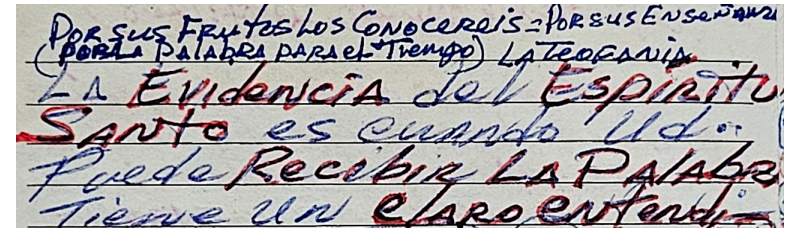 POR SUS FRUTOS LOS CONOCEREIS = POR SUS ENSEÑANZA
(POR LA PALABRA PARA EL TIEMPO) LA TEOFANIA
LA EVIDENCIA del ESPIRITU
SANTO es cuando Ud.
Puede Recibir LA PALABRA
Tiene un CLARO entendi-